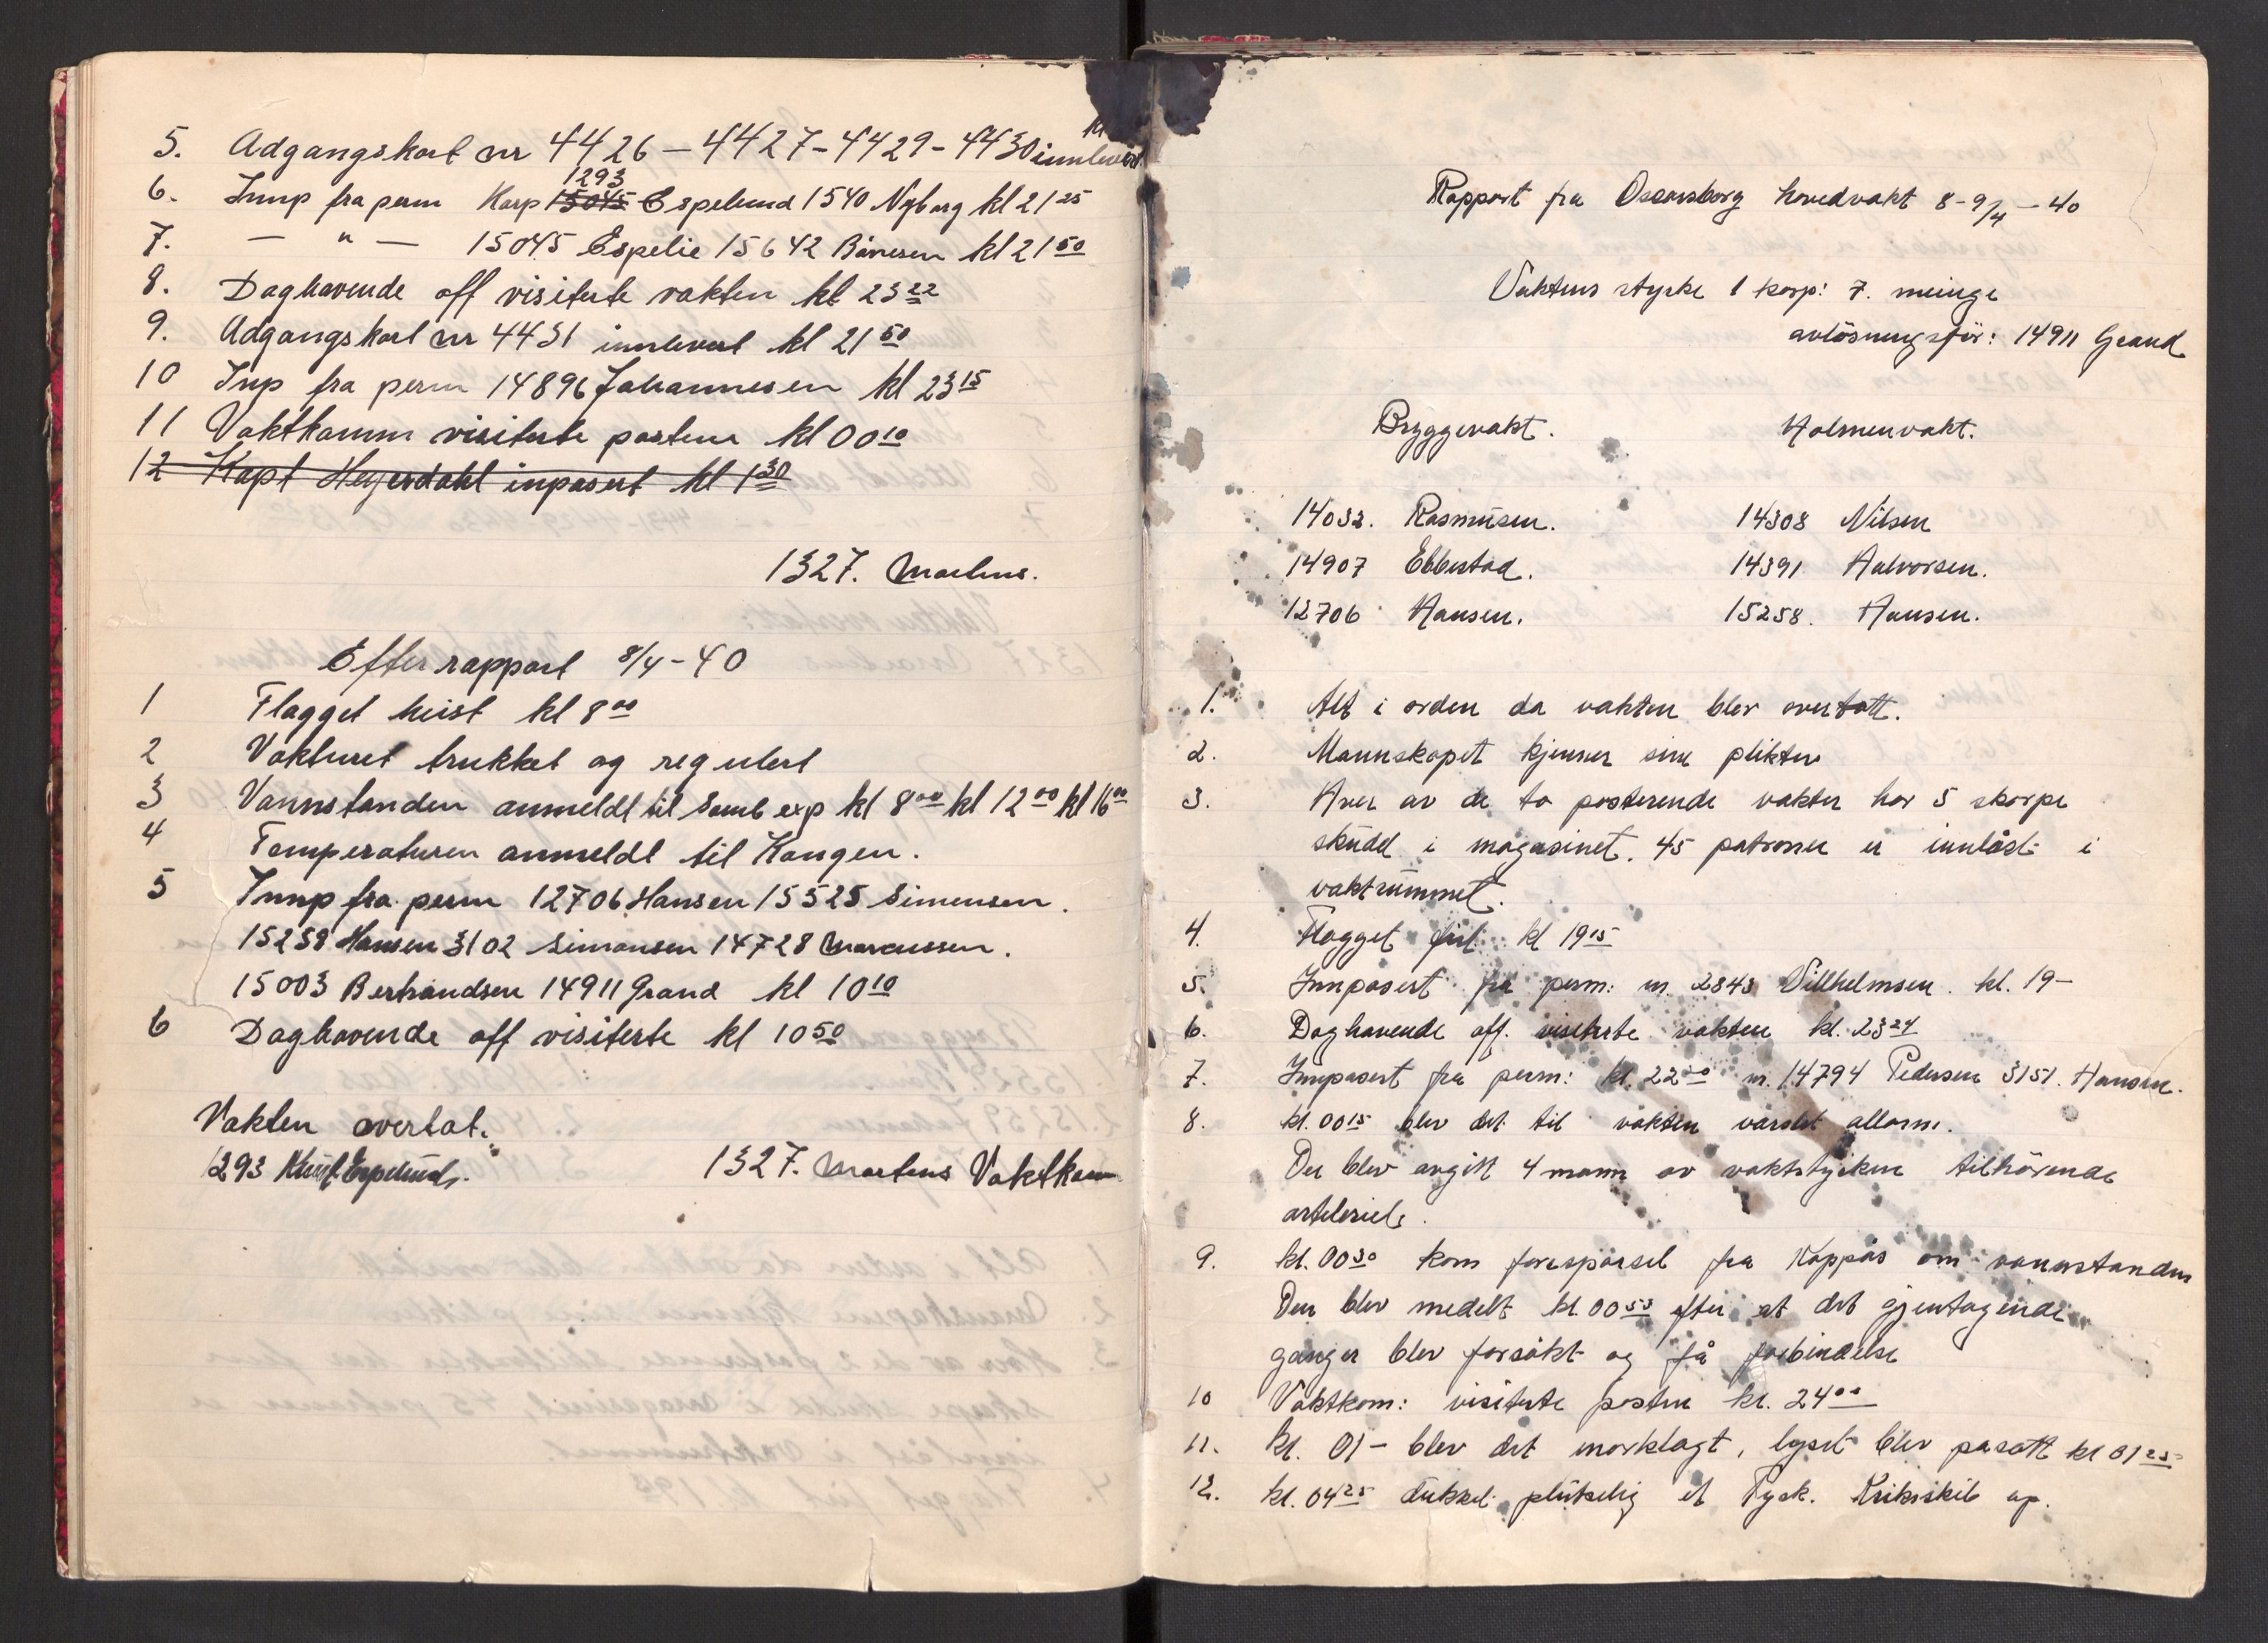 5. Adgangskort nr 4426 – 4427 – 4429 – 4430 innlevert kl
6. Innp fra perm Korp 1293 15045 Espelund 1540 Nyborg kl 21 25
7. — " — 15045 Espelie 15642 kl 21 50
8. Daghavende off visiterte vakten kl 23 22
9. Adgangskort nr 4431 innlevert kl 21 50
10 Inp fra perm 14896 Johannesen kl 23 15
11 Vaktkomm visiterte postene kl 00 10
12 Kapt Heyerdahl inpasert kl 1 30
1327. Martens.
Efter rapport 8/4 – 40
1 Flagget heist kl 8 00
2 Vakturet trukket og regulert
3 Vannstanden anmeldt til Samb exp kl 8 00 kl 12 00 kl 16 00
4 Temperaturen anmeldt til Kongen.
5 Innp fra perm 12706 Hansen 15525 Simensen.
15258 Hansen 3102 Simonsen 14728 Marcussen.
15003 Bertrandsen 14911 Grand kl 10 10
6 Daghavende off visiterte kl 10 50
Vakten overtat.
1293 Espelund.
1327. Martens Vaktkom
Rapport fra Oscarsborg hovedvakt 8-9/4 – 40
Vaktens styrke 1 korp: 7. meinge
avlösningsför: 14911 Grand
Bryggevakt. Holmenvakt.
14032. Rasmusen. 14308 Nilsen
14907 Ebbestad. 14391 Halvorsen.
12706 Hansen. 15258. Hansen.
1. Alt i orden da vakten blev overtatt.
2. Mannskapet kjenner sine plikter
3. Hver av de to posterende vakter har 5 skarpe
skudd i magasinet. 45 patroner er innlåst i
vaktrummet.
4. Flagget firt kl 19 15
5. Innpasert fra perm: nr. 2843 Villhelmsen. kl. 19 –
6. Daghavende off. visiterte vakten kl. 23 24
7. Innpasert fra perm: kl. 22 20 nr. 14794 Pedersen 3151. Hansen.
8. kl. 00 15 blev det til vakten varslet allarm.
Der blev avgitt 4 mann av vaktstyrken tilhörende
arteleriet.
9. kl. 00 30 kom forespörsel fra Koppås om vannstanden
Den blev medelt kl. 00 53 efter at det gjentagende
ganger blev forsökt og få forbindelse
10 Vaktkom: visiterte posten kl. 24 00
11. Kl. 01 – blev det mörklagt, lyset blev påsatt kl 01 25
12. kl. 04 25 dukket plutselig et Tysk. Kriksskib op.